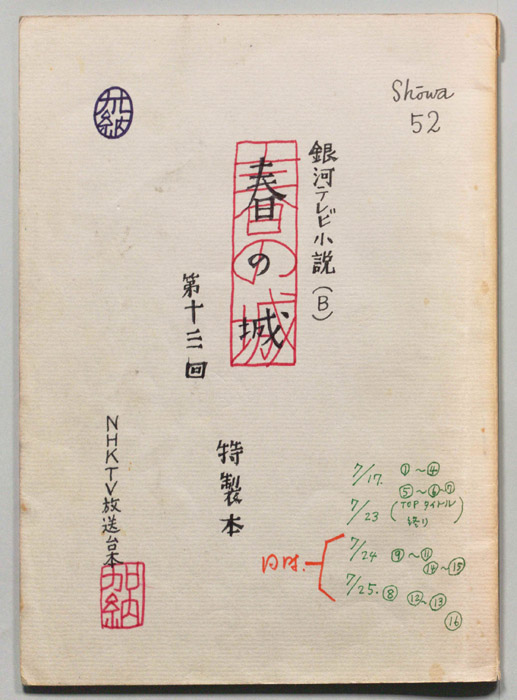 Shōwa
52
銀河テレビ小説(B)
春の城
第十三回
特製本
NHKTV放送台本
加納
加納
7/17. ①~④
⑤~⑥~⑦
7/23 (TOPタイトル
終り)
7/24 ⑨~⑪
⑭~⑮
7/25. ⑧ ⑫~⑬
⑯